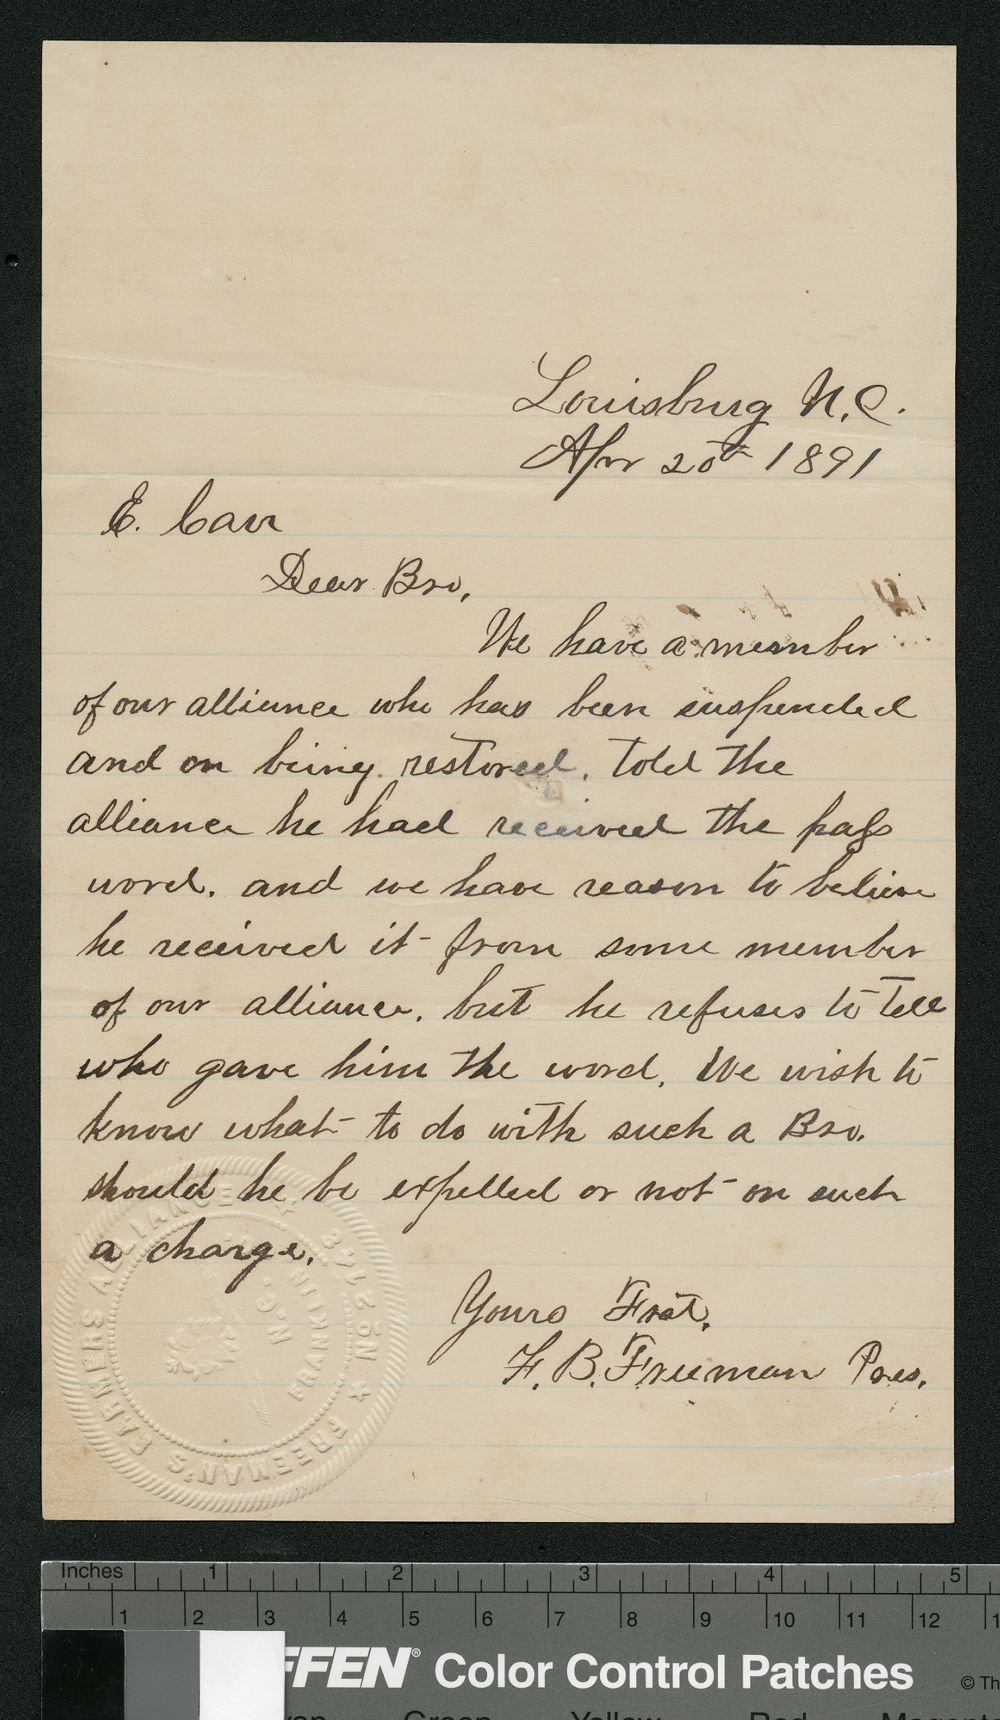 Louisburg N.C.
Apr 20th 1891
E. Carr
Dear Bro,
We have a member
of our alliance who has been suspended
and on being restored, told the
alliance he had received the pass
word. and we have reason to believe
he received it from some member
of our alliance. but he refuses to tell
who gave him the word. We wish to
know what to do with such a Bro.
should he be expelled or not on such
a charge.
Yours Frat,
F. B. Freeman Pres.
FREEMAN'S FARMERS ALLIANCE
FRANKLIN
N.C.
Inches 1 2 3 4 5
1 2 3 4 5 6 7 8 9 10 11 12
FFEN® Color Control Patches
© Th
Green Yellow Red Magenta